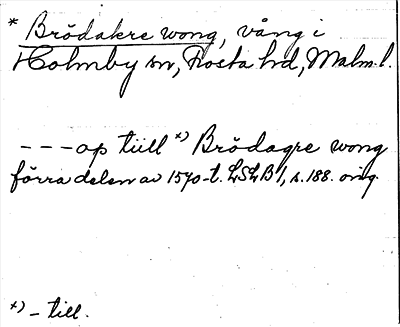 * Brödakre wong, vång i
Holmby sn, Frosta hd, Malm. l.
- - - op tiill *) Brödagre wong
förra delen av 1570-t. LSLB 1, s. 188. orig.
*) - till.